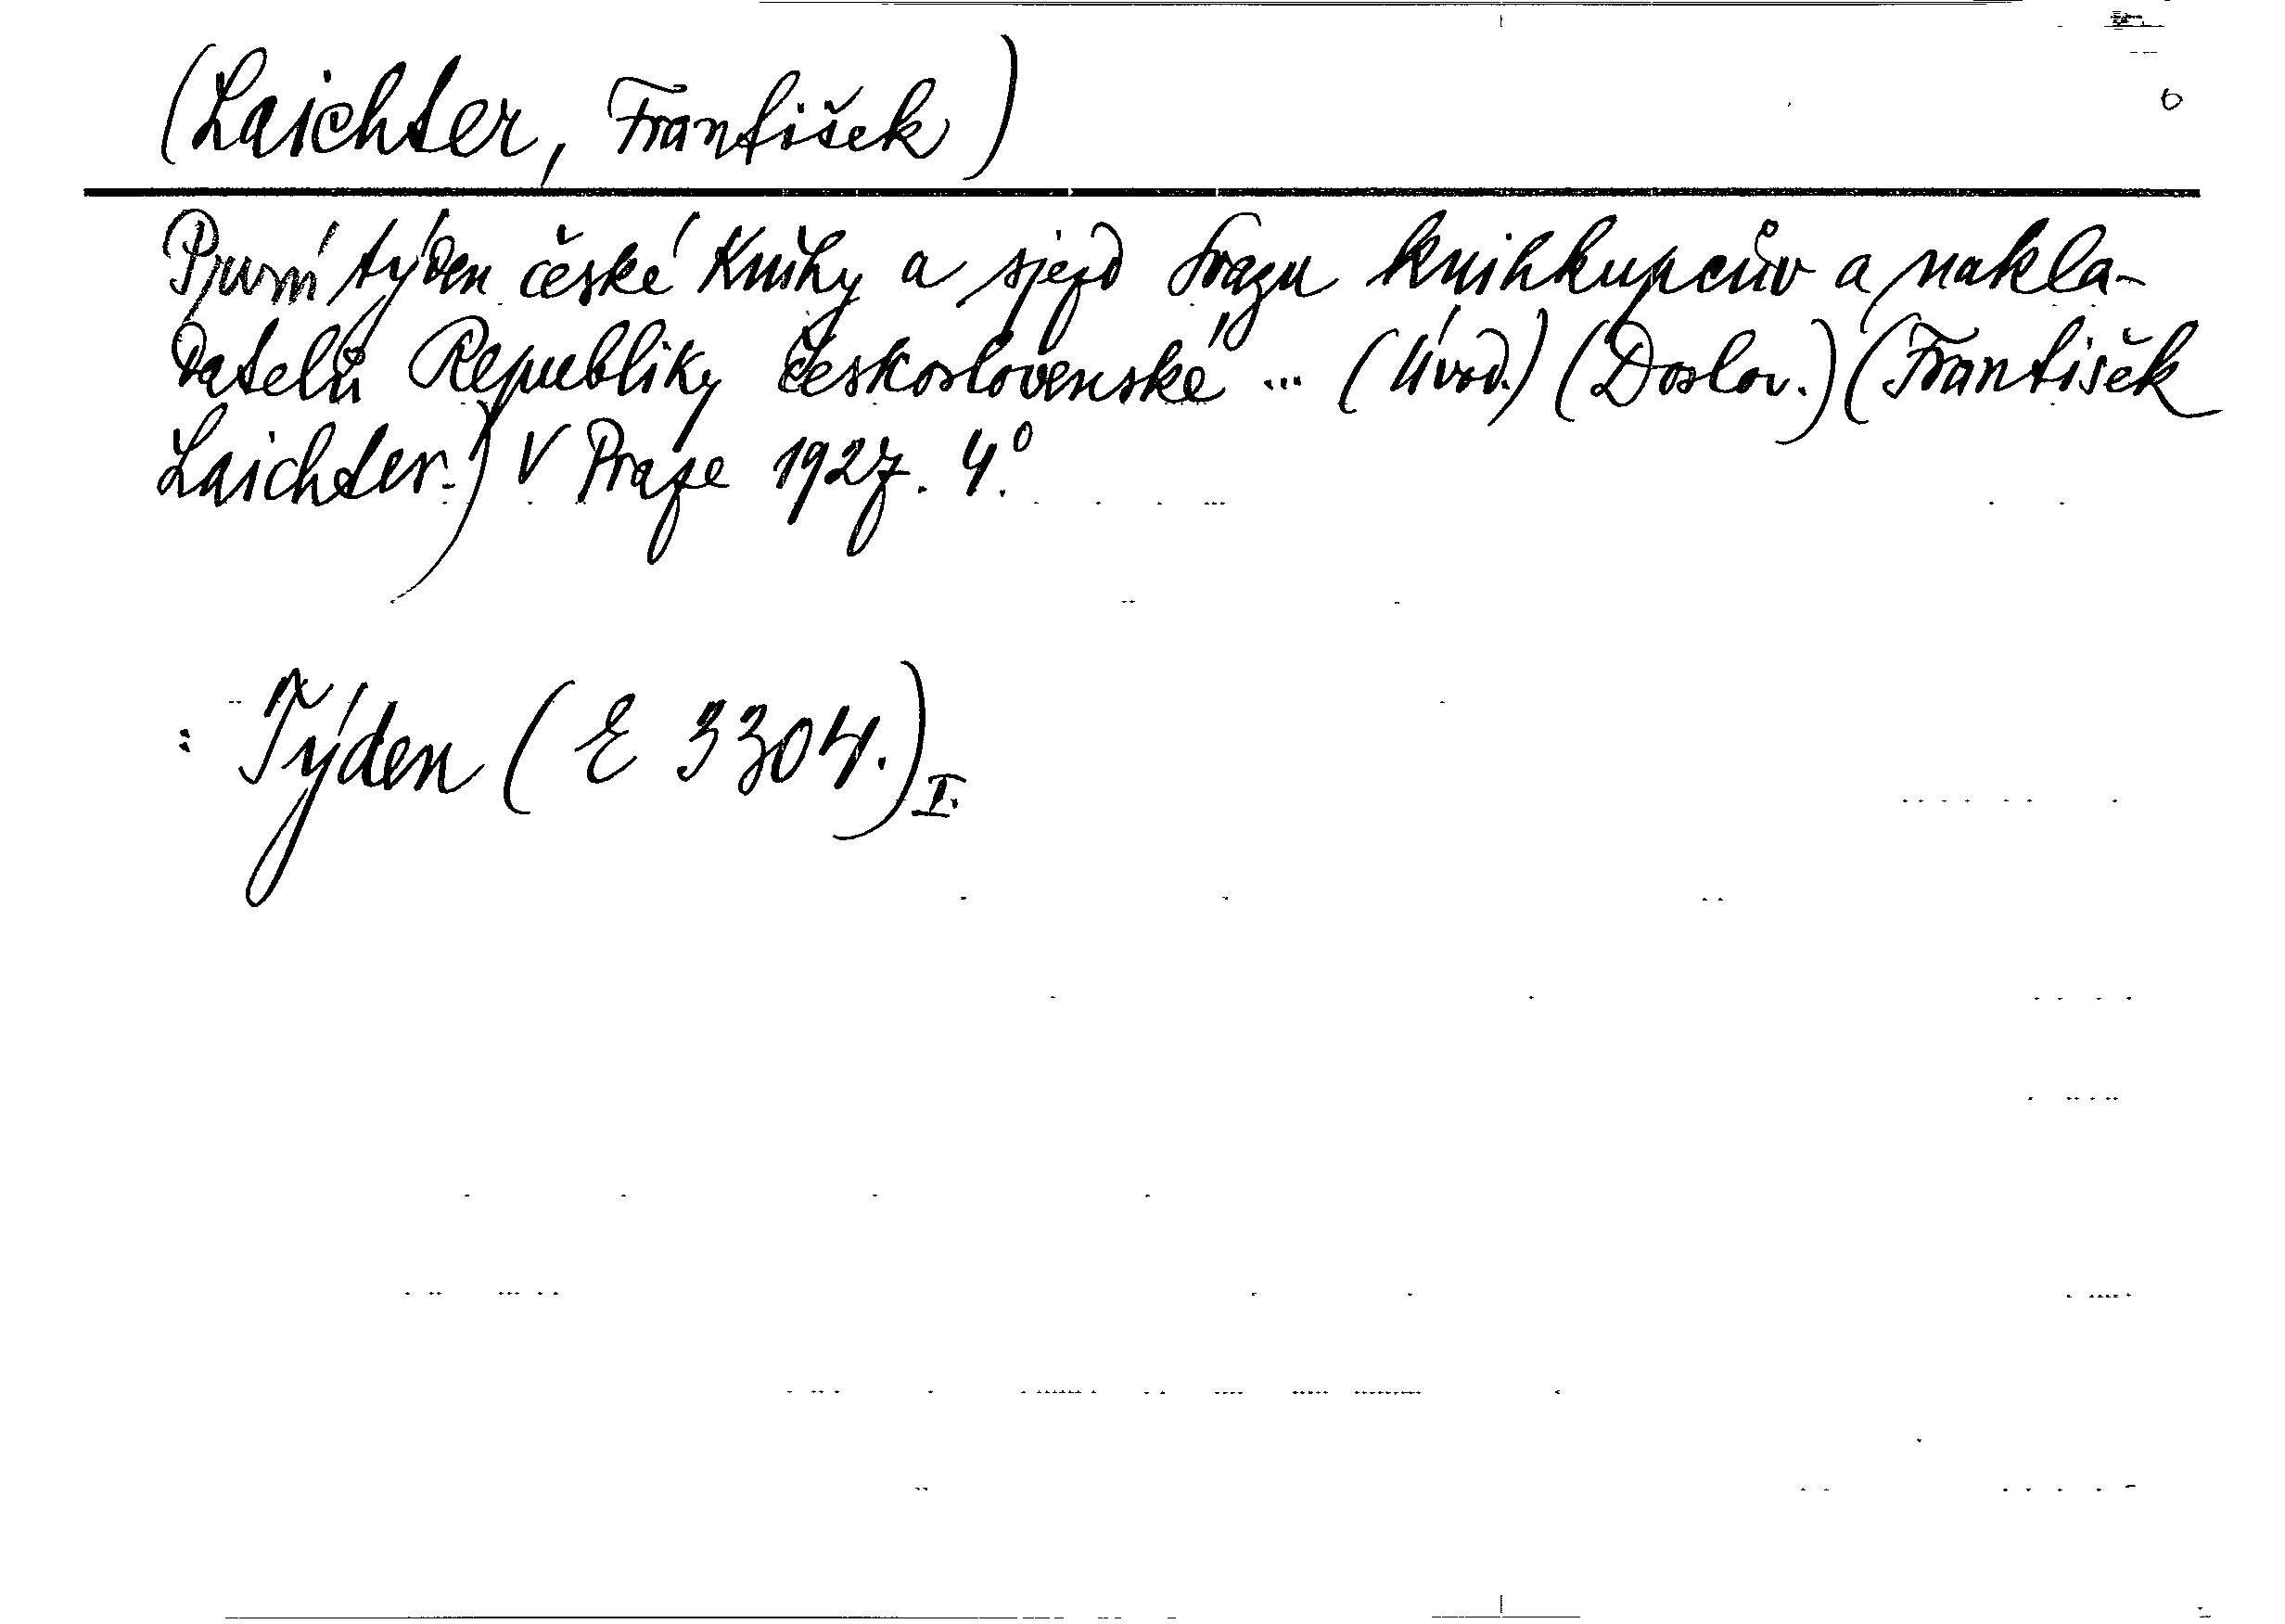 (Laichter, František)
První týden české knihy a sjezd Svazu knihkupcův a nakla-
datelů Republiky československé ... (Úvod.) (Doslov.) (František
Laichter.) V Praze 1927. 4.°
: Týden (E 3304.) I.